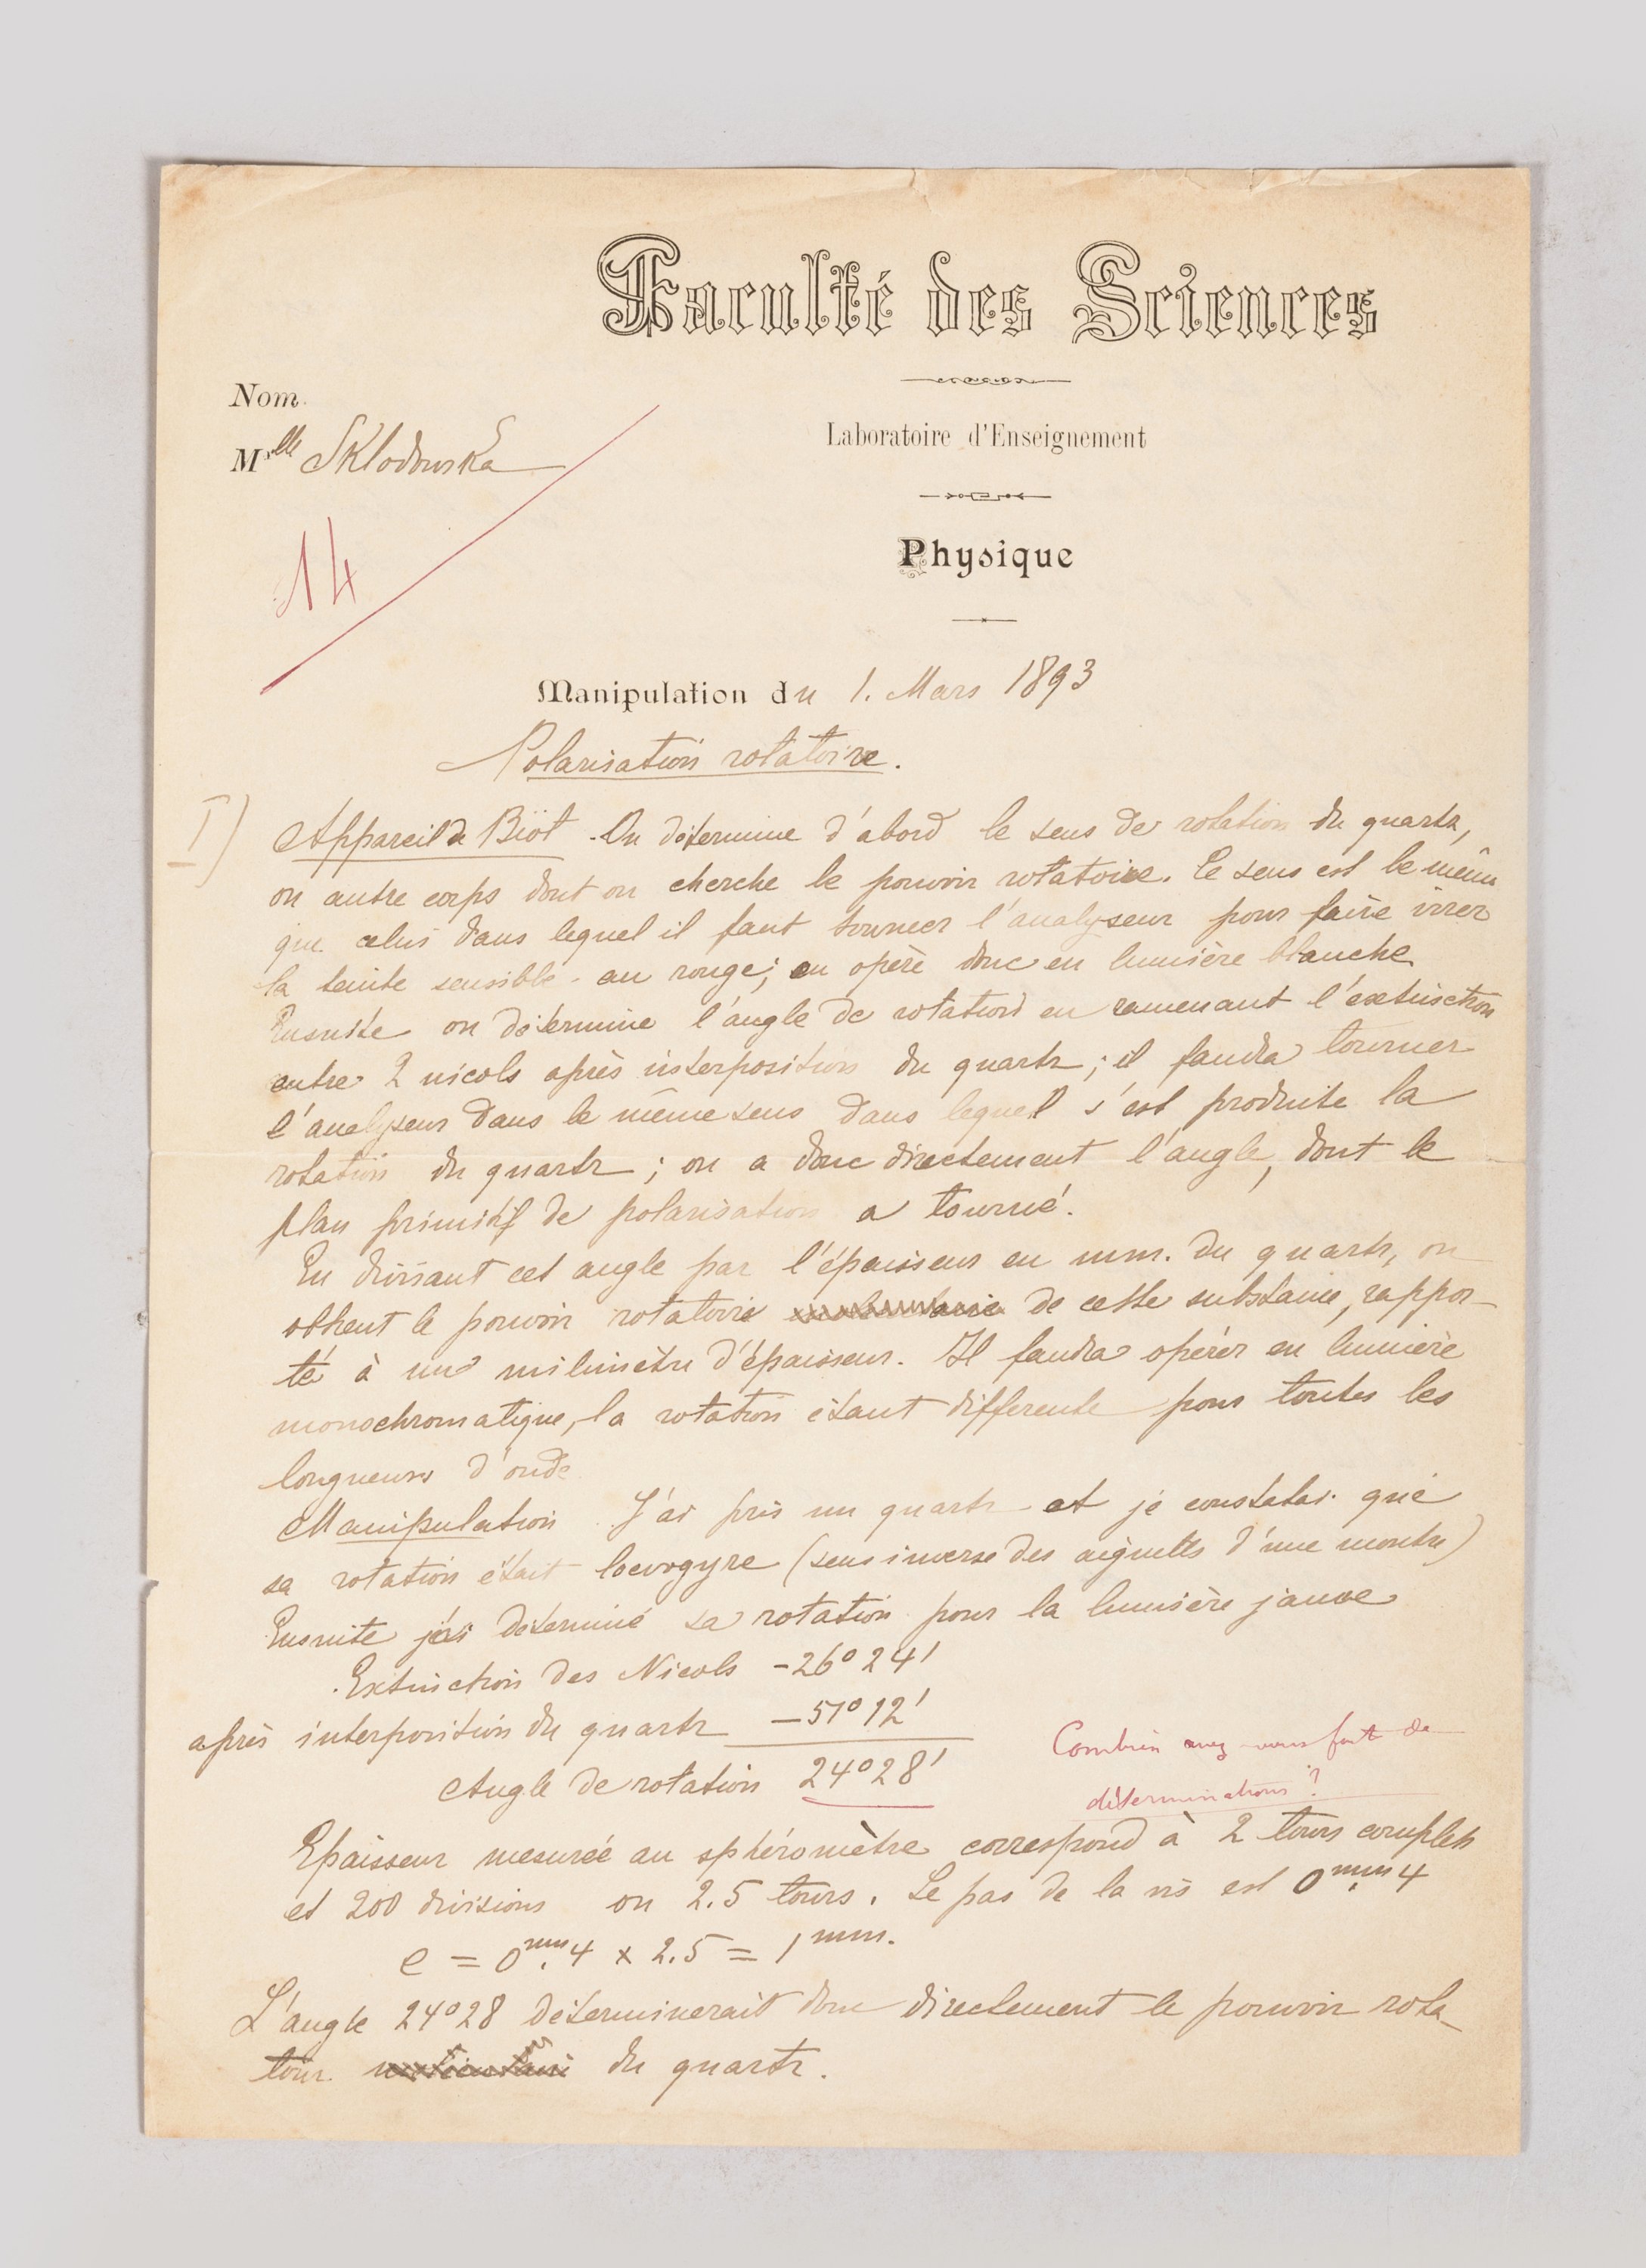 Faculté des Sciences
Nom
Mlle Sklodowska
Laboratoire d'Enseignement
14
Physique
Manipulation du 1. Mars 1893
Polarisation rotatoire.
I) Appareil de Biot. On détermine d'abord le sens de rotation du quartz,
ou autre corps dont on cherche le pouvoir rotatoire. Ce sens est le même
que celui dans lequel il faut tourner l'analyseur pour faire virer
la teinte sensible au rouge; on opère donc en lumière blanche.
Ensuite on détermine l'angle de rotation en ramenant l'extinction
entre 2 nicols après interposition du quartz; il faudra tourner
l'analyseur dans le même sens dans lequel s'est produite la
rotation du quartz; on a donc directement l'angle, dont le
plan primitif de polarisation a tourné.
En divisant cet angle par l'épaisseur en mm. du quartz, on
obtient le pouvoir rotatoire de cette substance, rappor-
té à un milimètre d'épaisseur. Il faudra opérer en lumière
monochromatique, la rotation étant differente pour toutes les
longueurs d'onde
Manipulation J'ai pris un quartz et je constatai que
sa rotation était loevogyre (sens inverse des aiguilles d'une montre)
Ensuite j'ai déterminé sa rotation pour la lumière jaune
Extinction des Nicols -26°24'
après interposition du quartz -51°12'
Angle de rotation 24°28'
Combien avez-vous fait de
déterminations?
Epaisseur mesurée au sphéromètre correspond à 2 tours complets
et 200 divisions ou 2.5 tours. Le pas de la vis est 0mm.4
e = 0mm.4 x 2.5 = 1mm.
L'angle 24°28 déterminerait donc directement le pouvoir rota-
toir du quartz.